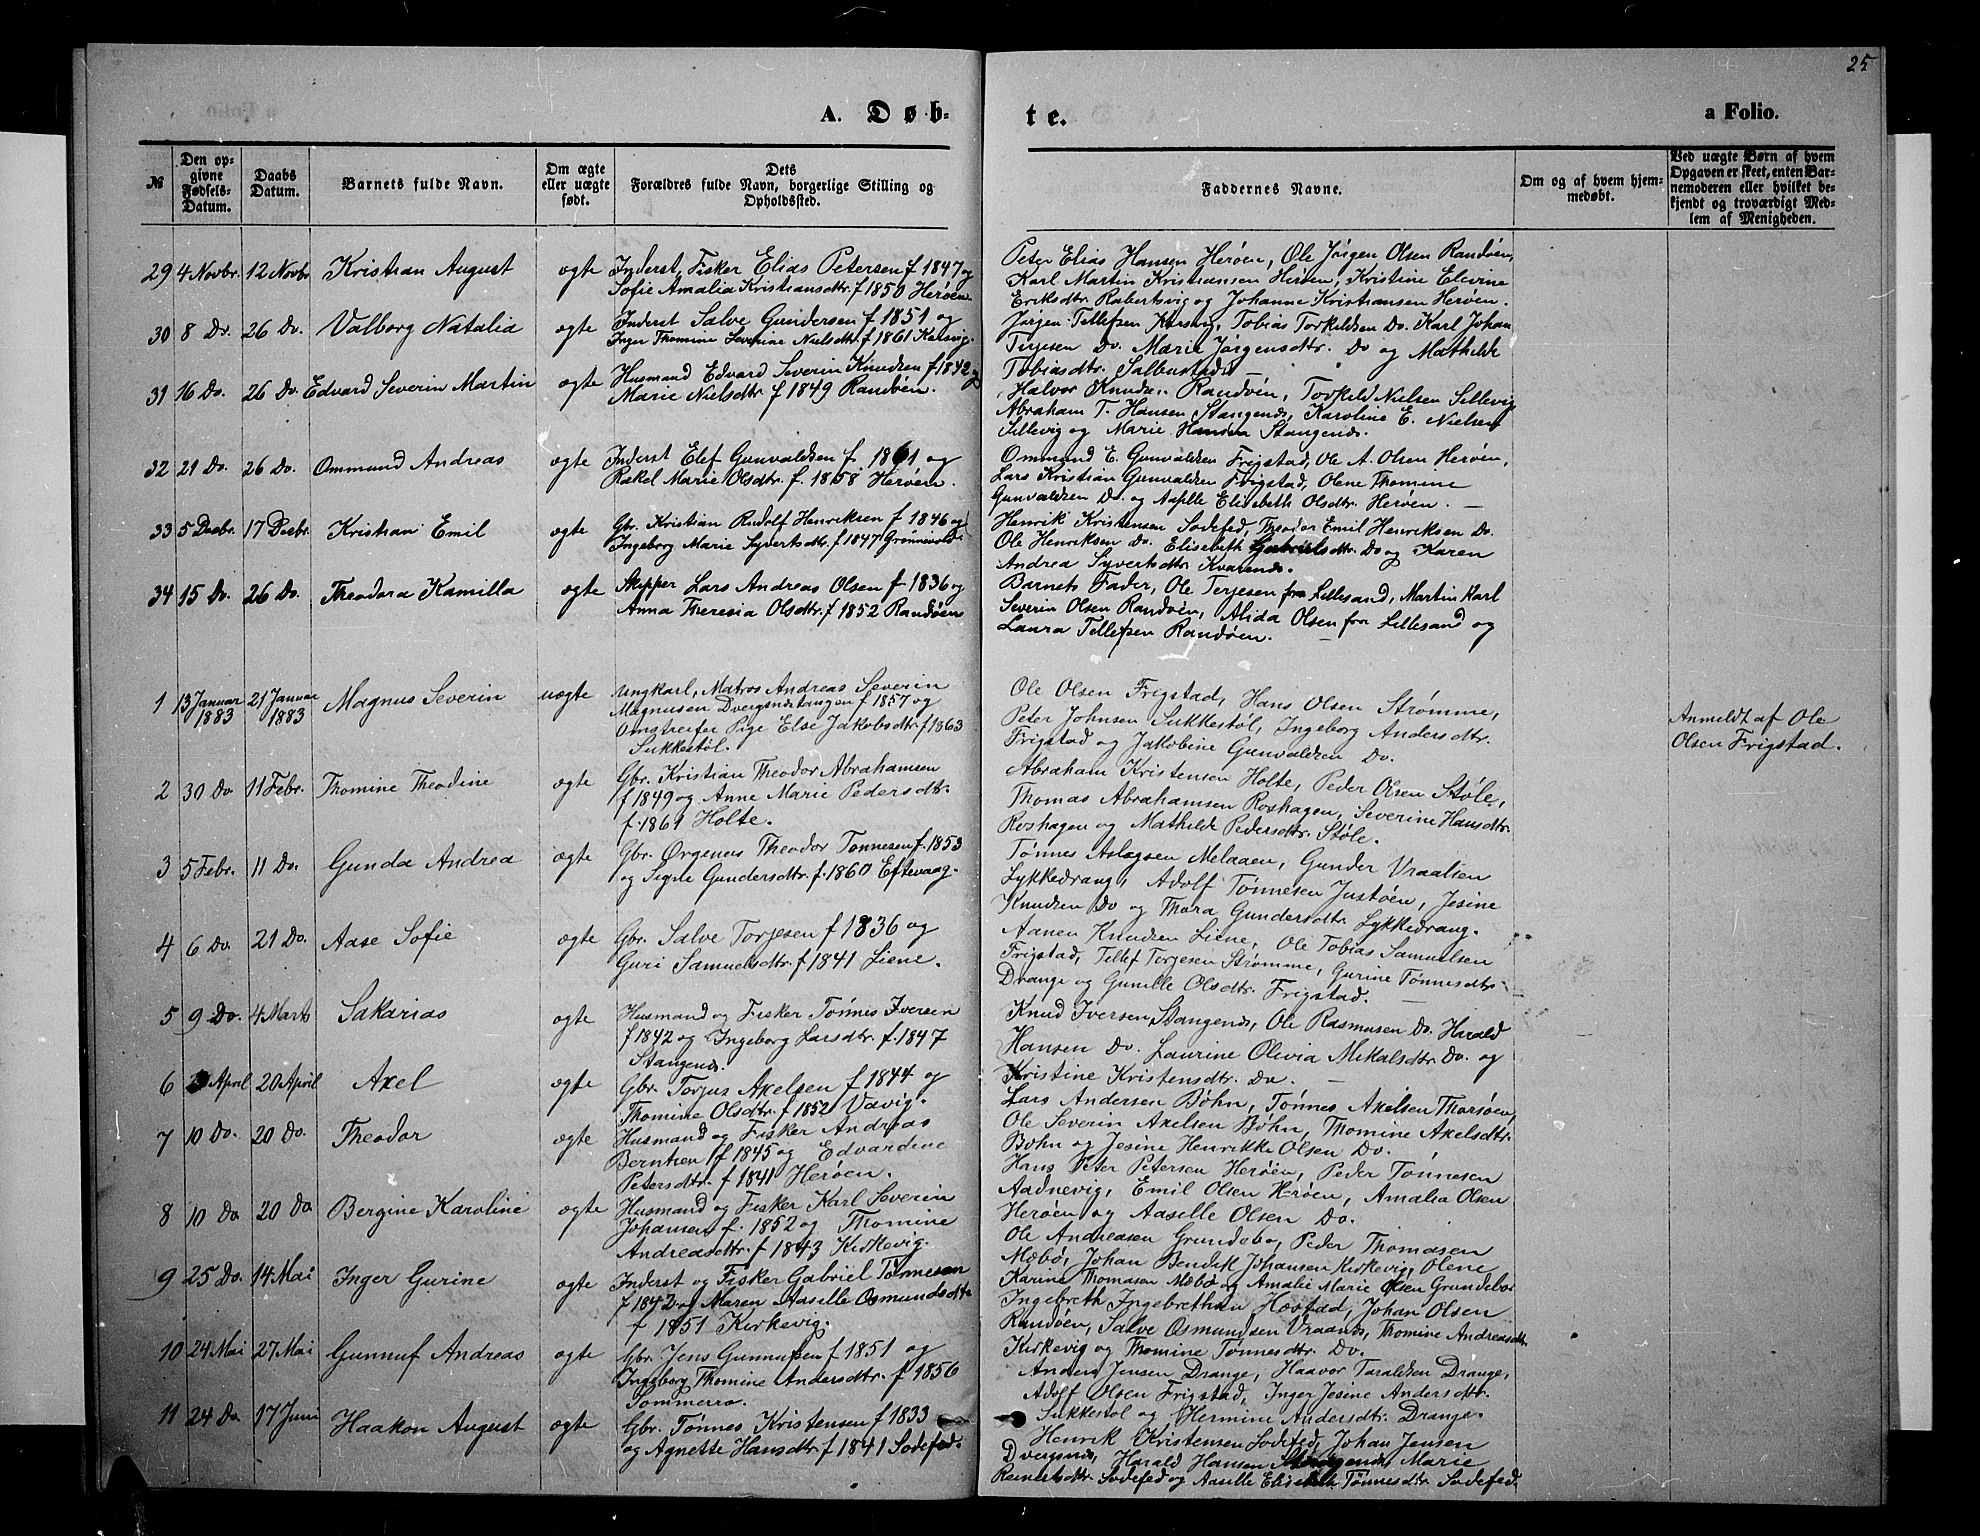 25
A. Døb-
te.
a Folio.
№
Den op-
givne
Fødsels-
Datum.
Daabs
Datum.
Barnets fulde Navn.
Om ægte
eller uægte
født.
Dets
Forældres fulde Navn, borgerlige Stilling og
Opholdssted.
Faddernes Navne.
Om og af hvem hjem-
medøbt.
Ved uægte Børn af hvem
Opgaven er skeet, enten Bar-
nemoderen eller hvilket be-
kjendt og troværdigt Med-
lem af Menigheden.
29 4 Novbr. 12 Novbr Kristian August ægte Inderst, Fisker Elias Petersen f 1847 og
Sofie Amalia Kristiansdtr. f 1850 Herøen
Peter Elias Hansen Herøen, Ole Jörgen Olsen Randöen,
Karl Martin Kristiansen Herøen, Kristine Elevine
Eriksdtr Rabertsvig og Johanne Kristiansen Herøen.
30 8 Do. 26 Do. Valborg Natalia ægte Inderst Salve Gundersen f 1851 og
Inger Thomine Severine Nielsdtr. f 1861 Kalsvig.
Jørgen Tellefsen, Tobias Torkildsen Do. Karl Johan
Terjesen Do. Marie Jørgensdtr. Do og Mathilde
Tobiasdtr. Salbustad.
31 16 Do. 26 Do. Edvard Severin Martin ægte Husmand Edvard Severin Knudsen f 1842 og
Marie Nielsdtr f 1849 Randøen.
Halvor Knudsen Randøen, Torkild Nielsen Sillevig
Abraham T. Hansen Stangends, Karoline E. Nielsen
Sillevig og Marie Hansen Stangends.
32 21 Do. 26 Do. Ommund Andreas ægte Inderst Elef Gunvaldsen f. 1861 og
Rakel Marie Olsdtr. f. 1858 Herøen.
Ommund E. Gunvaldsen Frigstad, Ole A. Olsen Herøen,
Lars Kristian Gunvaldsen Frigstad, Olene Thomine
Gunvaldsen Do. og Aaselle Elisebeth Olsdtr. Herøen.
33 5 Decbr. 17 Decbr. Kristian Emil ægte Gbr. Kristian Rudolf Henriksen f 1846 og
Ingeborg Marie Syvertsdtr. f 1847
Henrik Kristensen Sodefed, Theodor Emil Henriksen Do.
Ole Henriksen Do. Elisebeth Gabrielsdtr. Do og Karen
Andrea Syvertsdtr Kvarends.
34 15 Do. 26 Do. Theodora Kamilla ægte Skipper Lars Andreas Olsen f 1836 og
Anna Theresia Olsdtr. f 1852 Randøen
Barnets Fader, Ole Terjesen fra Lillesand, Martin Karl
Severin Olsen Randøen, Alida Olsen fra Lillesand og
Laura Tellefsen Randøen.
1 13 Januar 1883 21 Januar 1883 Magnus Severin uægte Ungkarl, Matros Andreas Severin
Magnusen Dvergsndstangen f 1857 og
Omstreifer Pige Else Jakobsdtr. f 1863
Sukkestøl.
Ole Olsen Frigstad, Hans Olsen Strømme,
Peter Johnsen Sukkestøl, Ingeborg Andersdtr.
Frigstad og Jakobine Gunvaldsen Do.
Anmeldt af Ole
Olsen Frigstad.
2 30 Do. 11 Febr. Thomine Theodine ægte Gbr. Kristian Theodor Abrahamsen
f 1849 og Anne Marie Pedersdtr.
f. 1861 Holte.
Abraham Kristensen Holte, Peder Olsen Støle,
Thomas Abrahamsen Roshagen, Severine Hansdtr.
Roshagen og Mathilde Pedersdtr. Støle.
3 5 Febr. 11 Do. Gunda Andrea ægte Gbr. Ørgenus Theodor Tønnesen f. 1853
og Signe Gundersdtr. f. 1860 Eftevaag.
Tønnes Aslagsen Melaaen, Gunder Vraalsen
Lykkedrang, Adolf Tønnesen Justøen, Jesine
Knudsen Do og Thora Gundersdtr. Lykkedrang.
4 6 Do. 21 Do. Aase Sofie ægte Gbr. Salve Torjesen f 1836 og
Guri Samuelsdtr. f 1841 Liene.
Aanen Knudsen Liene, Ole Tobias Samuelsen
Frigstad, Tellef Torjesen Strømme, Gurine Tønnesdtr.
Drange og Gunille Olsdtr. Frigstad.
5 9 Do. 4 Marts Sakarias ægte Husmand og Fisker Tönnes Iversen
f 1842 og Ingeborg Larsdtr. f. 1847
Stangends.
Knud Iversen Stangends, Ole Rasmusen Do. Harald
Hansen Do. Laurine Olivia Mikalsdtr. Do. og
Kristine Kristensdtr. Do.
6 April 20 April Axel ægte Gbr. Torjus Axelsen f 1844 og
Thomine Olsdtr. f 1852 Vavig.
Lars Andersen Bøhn, Tønnes Axelsen Tharsøen,
Ole Severin Axelsen Bøhn, Thomine Axelsdtr.
Bøhn og Jesine Henrikke Olsen Do.
7 10 Do. 20 Do. Theodor ægte Husmand og Fisker Andreas
Berntsen f 1845 og Edvardine
Petersdtr. f 1841 Herøen.
Hans Peter Petersen Herøen, Peder Tønnesen
Aadnevig, Emil Olsen Herøen, Amalia Olsen
Herøen og Aaselle Olsen Do.
8 10 Do 20 Do Bergine Karoline ægte Husmand og Fisker Karl Severin
Johansen f. 1852 og Thomine
Andreasdtr. f 1843 Kirkevig.
Ole Andreasen Grundebo, Peder Thomasen
Mæbø, Johan Bendik Johansen Kirkevig, Olene
Karine Thomasen Mæbø og Amalie Marie Olsen Grundebo
9 25 Do. 14 Mai Inger Gurine ægte Inderst og Fisker Gabriel Tønnesen
f 1842 og Maren Aaselle Osmundsdtr
f 1851 Kirkevig.
Ingebreth Ingebrethsen Hæstad, Johan Olsen
Randøen, Salve Osmundsen Vraands, Thomine Andreasdtr
Kirkevig og Thomine Tønnesdtr. Do.
10 24 Mai 27 Mai Gunnuf Andreas ægte Gbr. Jens Gunnufsen f 1851 og
Ingeborg Thomine Andersdtr. f 1856
Sommerro.
Anders Jensen Drange, Haavor Taraldsen Drange,
Adolf Olsen Frigstad, Inger Jesine Andersdtr.
Sukkestøl og Hermine Andersdtr. Drange.
11 24 Do. 17 Juni Haakon August ægte Gbr. Tønnes Kristensen f 1833
og Agnette Hansdtr f 1841 Sodefed.
Henrik Kristensen Sodefed, Johan Jensen
Dvergsnds, Harald Hansen Stangends, Marie
Reinertsdtr. Sodefed og Aaselle Elisebeth Tønnesdtr Sodefed.